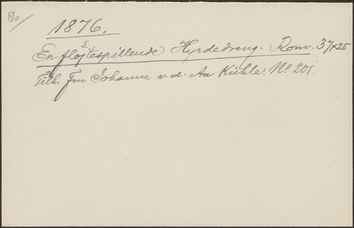 80/
1876.
En fløjtespillende Hyrdedreng. Rom. 37x25
Tilh. Frn Johanne v. d. Aa Kühle. No 201.